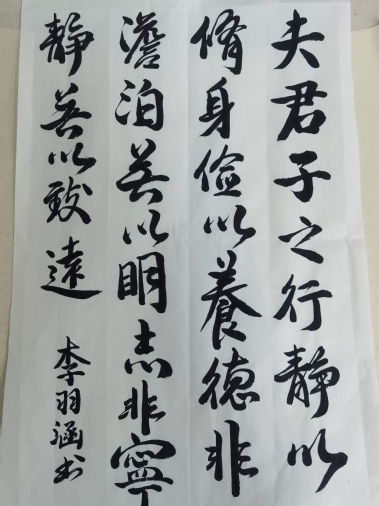 夫君子之行静以
脩身俭以養德非
澹泊无以明志非寧
静无以致遠
李羽涵书